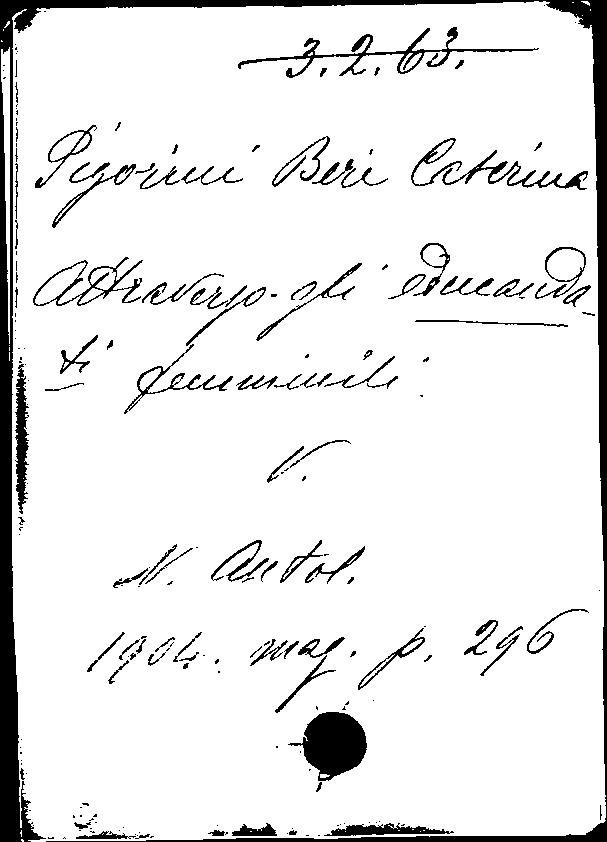 3.2.63.
Pigorini Beri Caterina
Attraverso gli educanda-
ti femminili
V.
N. Antol.
1904. mag. p. 296